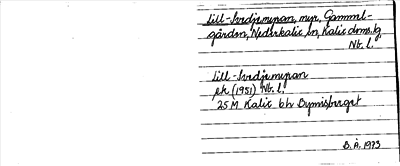 Lill-Svedjemyran, myr, Gammel-
gården, Nederkalix sn, Kalix doms.tg,
Nb. l.
Lill-Svedjemyran
ek (1951) Nb. l.
25 M Kalix bl. Bymisberget
B. Å. 1973